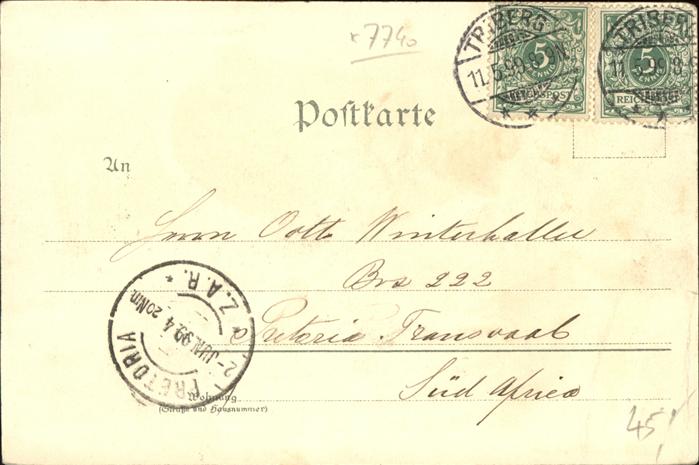 x 7740
TRIBERG
11.5.99.8-9N.
5
PFENNIG
REICHSPOST
TRIBERG
11.5.99.8-
5
PFENNIG
REICHSPOST
Postkarte
An
Herrn Otto Winterhalter
Box 222
Pretoria. Transvaal
Süd Africa
PRETORIA
2-JUN.99.4 20Nm.
Z.A.R.
Wohnung
(Straße und Hausnummer)
45,